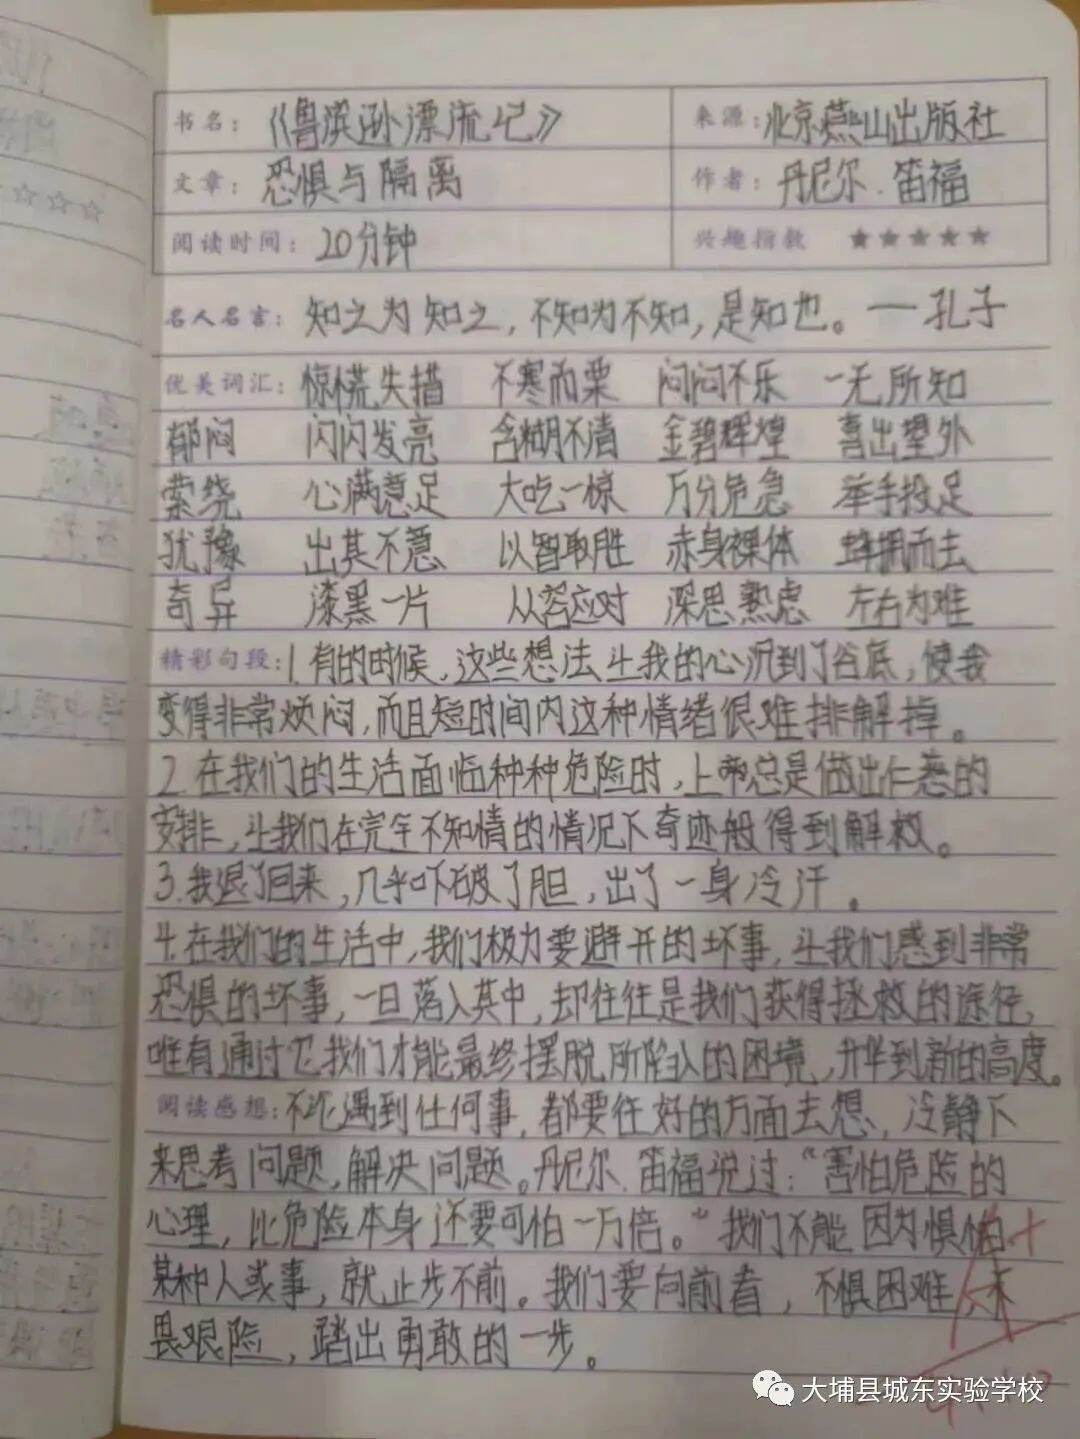 书名：《鲁滨逊漂流记》 来源：北京燕山出版社
文章：恐惧与隔离 作者：丹尼尔.笛福
阅读时间：20分钟 兴趣指数 ★★★★★
名人名言：知之为知之，不知为不知，是知也。——孔子
优美词汇：惊慌失措 不寒而栗 闷闷不乐 一无所知
郁闷 闪闪发亮 含糊不清 金碧辉煌 喜出望外
萦绕 心满意足 大吃一惊 万分危急 举手投足
犹豫 出其不意 以智取胜 赤身裸体 蜂拥而去
奇异 漆黑一片 从容应对 深思熟虑 左右为难
精彩句段：1.有的时候，这些想法让我的心沉到了谷底，使我
变得非常烦闷，而且短时间内这种情绪很难排解掉。
2.在我们的生活面临种种危险时，上帝总是做出仁慈的
安排，让我们在完全不知情的情况下奇迹般得到解救。
3.我退了回来，几乎吓破了胆，出了一身冷汗。
4.在我们的生活中，我们极力要避开的坏事，让我们感到非常
恐惧的坏事，一旦落入其中，却往往是我们获得拯救的途径，
唯有通过它我们才能最终摆脱所陷入的困境，升华到新的高度。
阅读感想：不论遇到任何事，都要往好的方面去想，冷静下
来思考问题，解决问题。丹尼尔.笛福说过：“害怕危险的
心理，比危险本身还要可怕一万倍。”我们不能因为惧怕
某种人或事，就止步不前。我们要向前看，不惧困难，不
畏艰险，踏出勇敢的一步。
大埔县城东实验学校